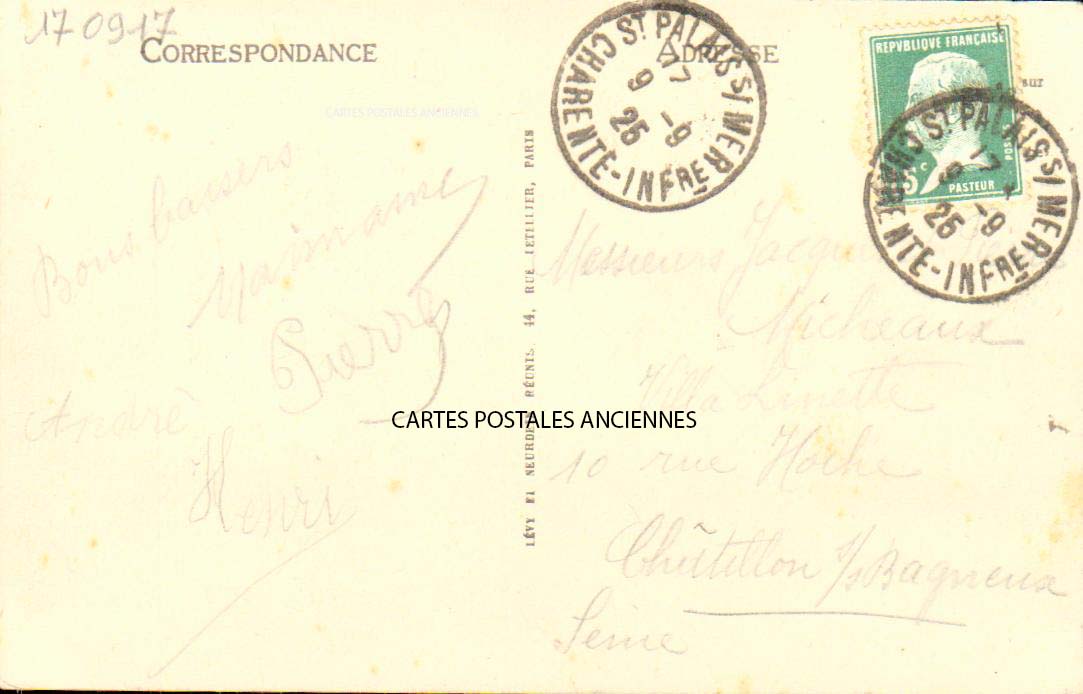 170917
CORRESPONDANCE
ADRESSE
sur
CARTES POSTALES ANCIENNES
ST PALAIS S/MER
17
9 -9
25
CHARENTE-INFRE
REPVBLIQVE FRANÇAISE
POSTES
15c
PASTEUR
ST PALAIS S/MER
17
9 -9
25
CHARENTE-INFRE
Bons baisers
Maimaine
Pierre
André
Henri
LÉVY ET NEURDEIN RÉUNIS. 44, RUE LETELLIER, PARIS
Messieurs
Micheaux
Villa Linette
10 rue Hoche
Châtillon s/s Bagneux
Seine
CARTES POSTALES ANCIENNES